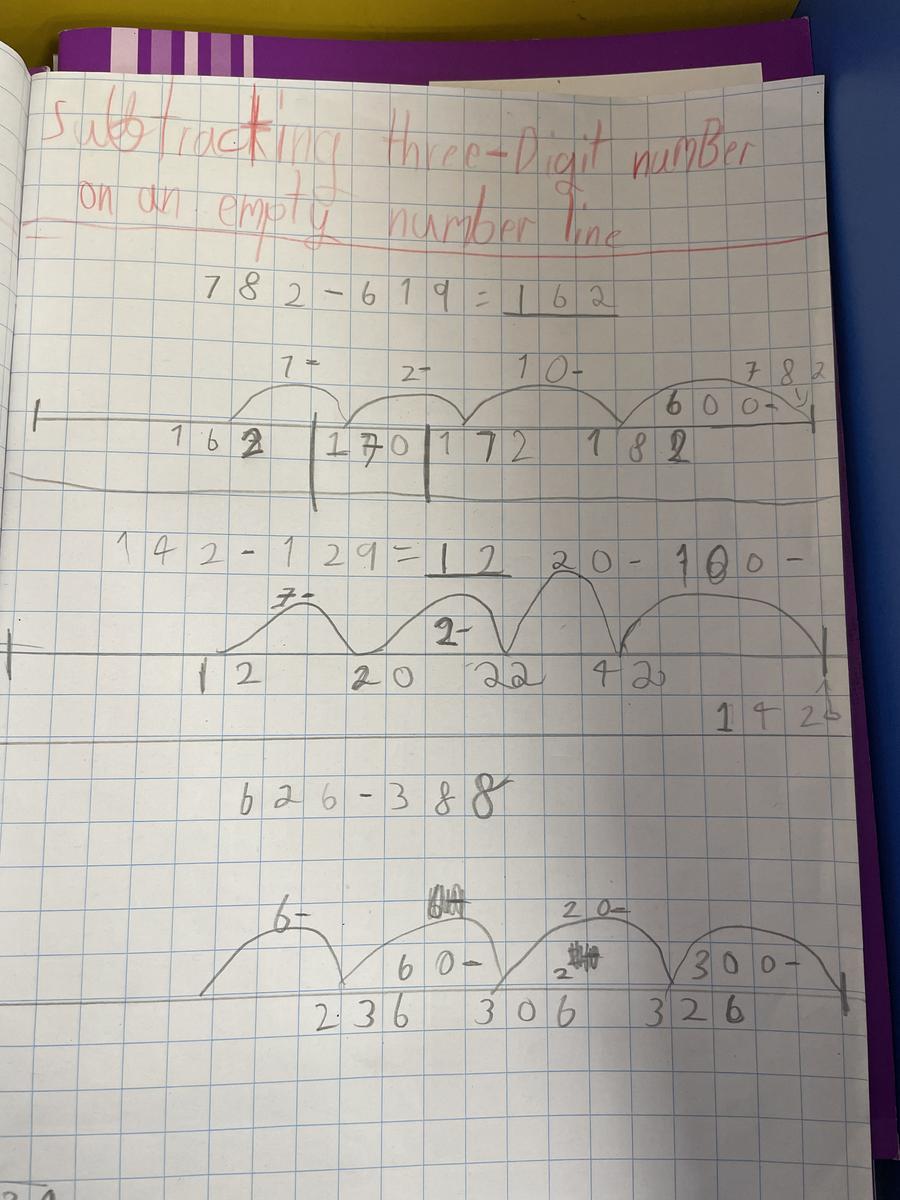 Subtracting three-Digit numBer
on an empty number line
782-619=162
7- 2- 10- 782
600-
162 170 172 182
142-129=12 20- 100-
7-
2-
12 20 22 42
142
626-388
6- 20-
60- 2 300-
236 306 326